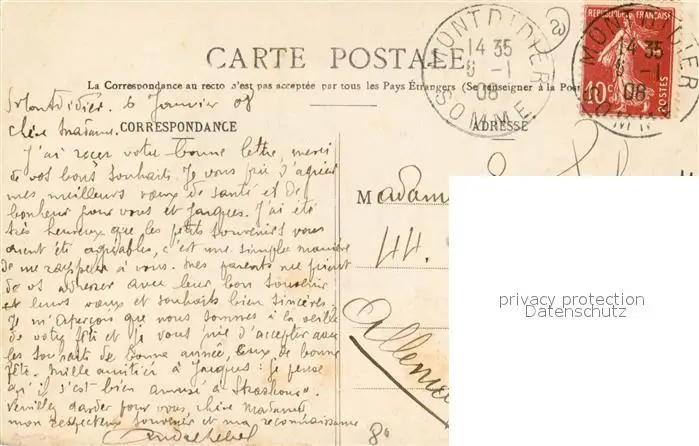 CARTE POSTALE
La Correspondance au recto n'est pas acceptée par tous les Pays Étrangers (Se renseigner à la Post
MONTDIDIER
14 35
6 -1
08
SOMME
RÉPUBLIQUE FRANÇAISE
10c
POSTES
MONTDIDIER
14 35
6 -1
08
SOMME
Montdidier 6 Janvier 08
Chère Madame
CORRESPONDANCE
ADRESSE
J'ai reçu votre bonne lettre, merci
de vos bons souhaits. Je vous prie d'agréer
mes meilleurs vœux de santé et de
bonheur pour vous et Jacques. J'ai été
très heureux que les petits souvenirs vous
aient été agréables, c'est une simple manière
de me rappeler à vous. Mes parents me prient
de vs adresser avec leur bon souvenir
et leurs vœux et souhaits bien sincères.
Je m'aperçois que nous sommes à la veille
de votre fête et je vous prie d'accepter avec
les souhaits de bonne année, ceux de bonne
fête. Mille amitiés à Jacques : je pense
qu'il s'est bien amusé à Strasbourg.
Veuillez garder pour vous, chère Madame,
mon respectueux souvenir et ma reconnaissance
Madame
44.
Allema
80
privacy protection
Datenschutz